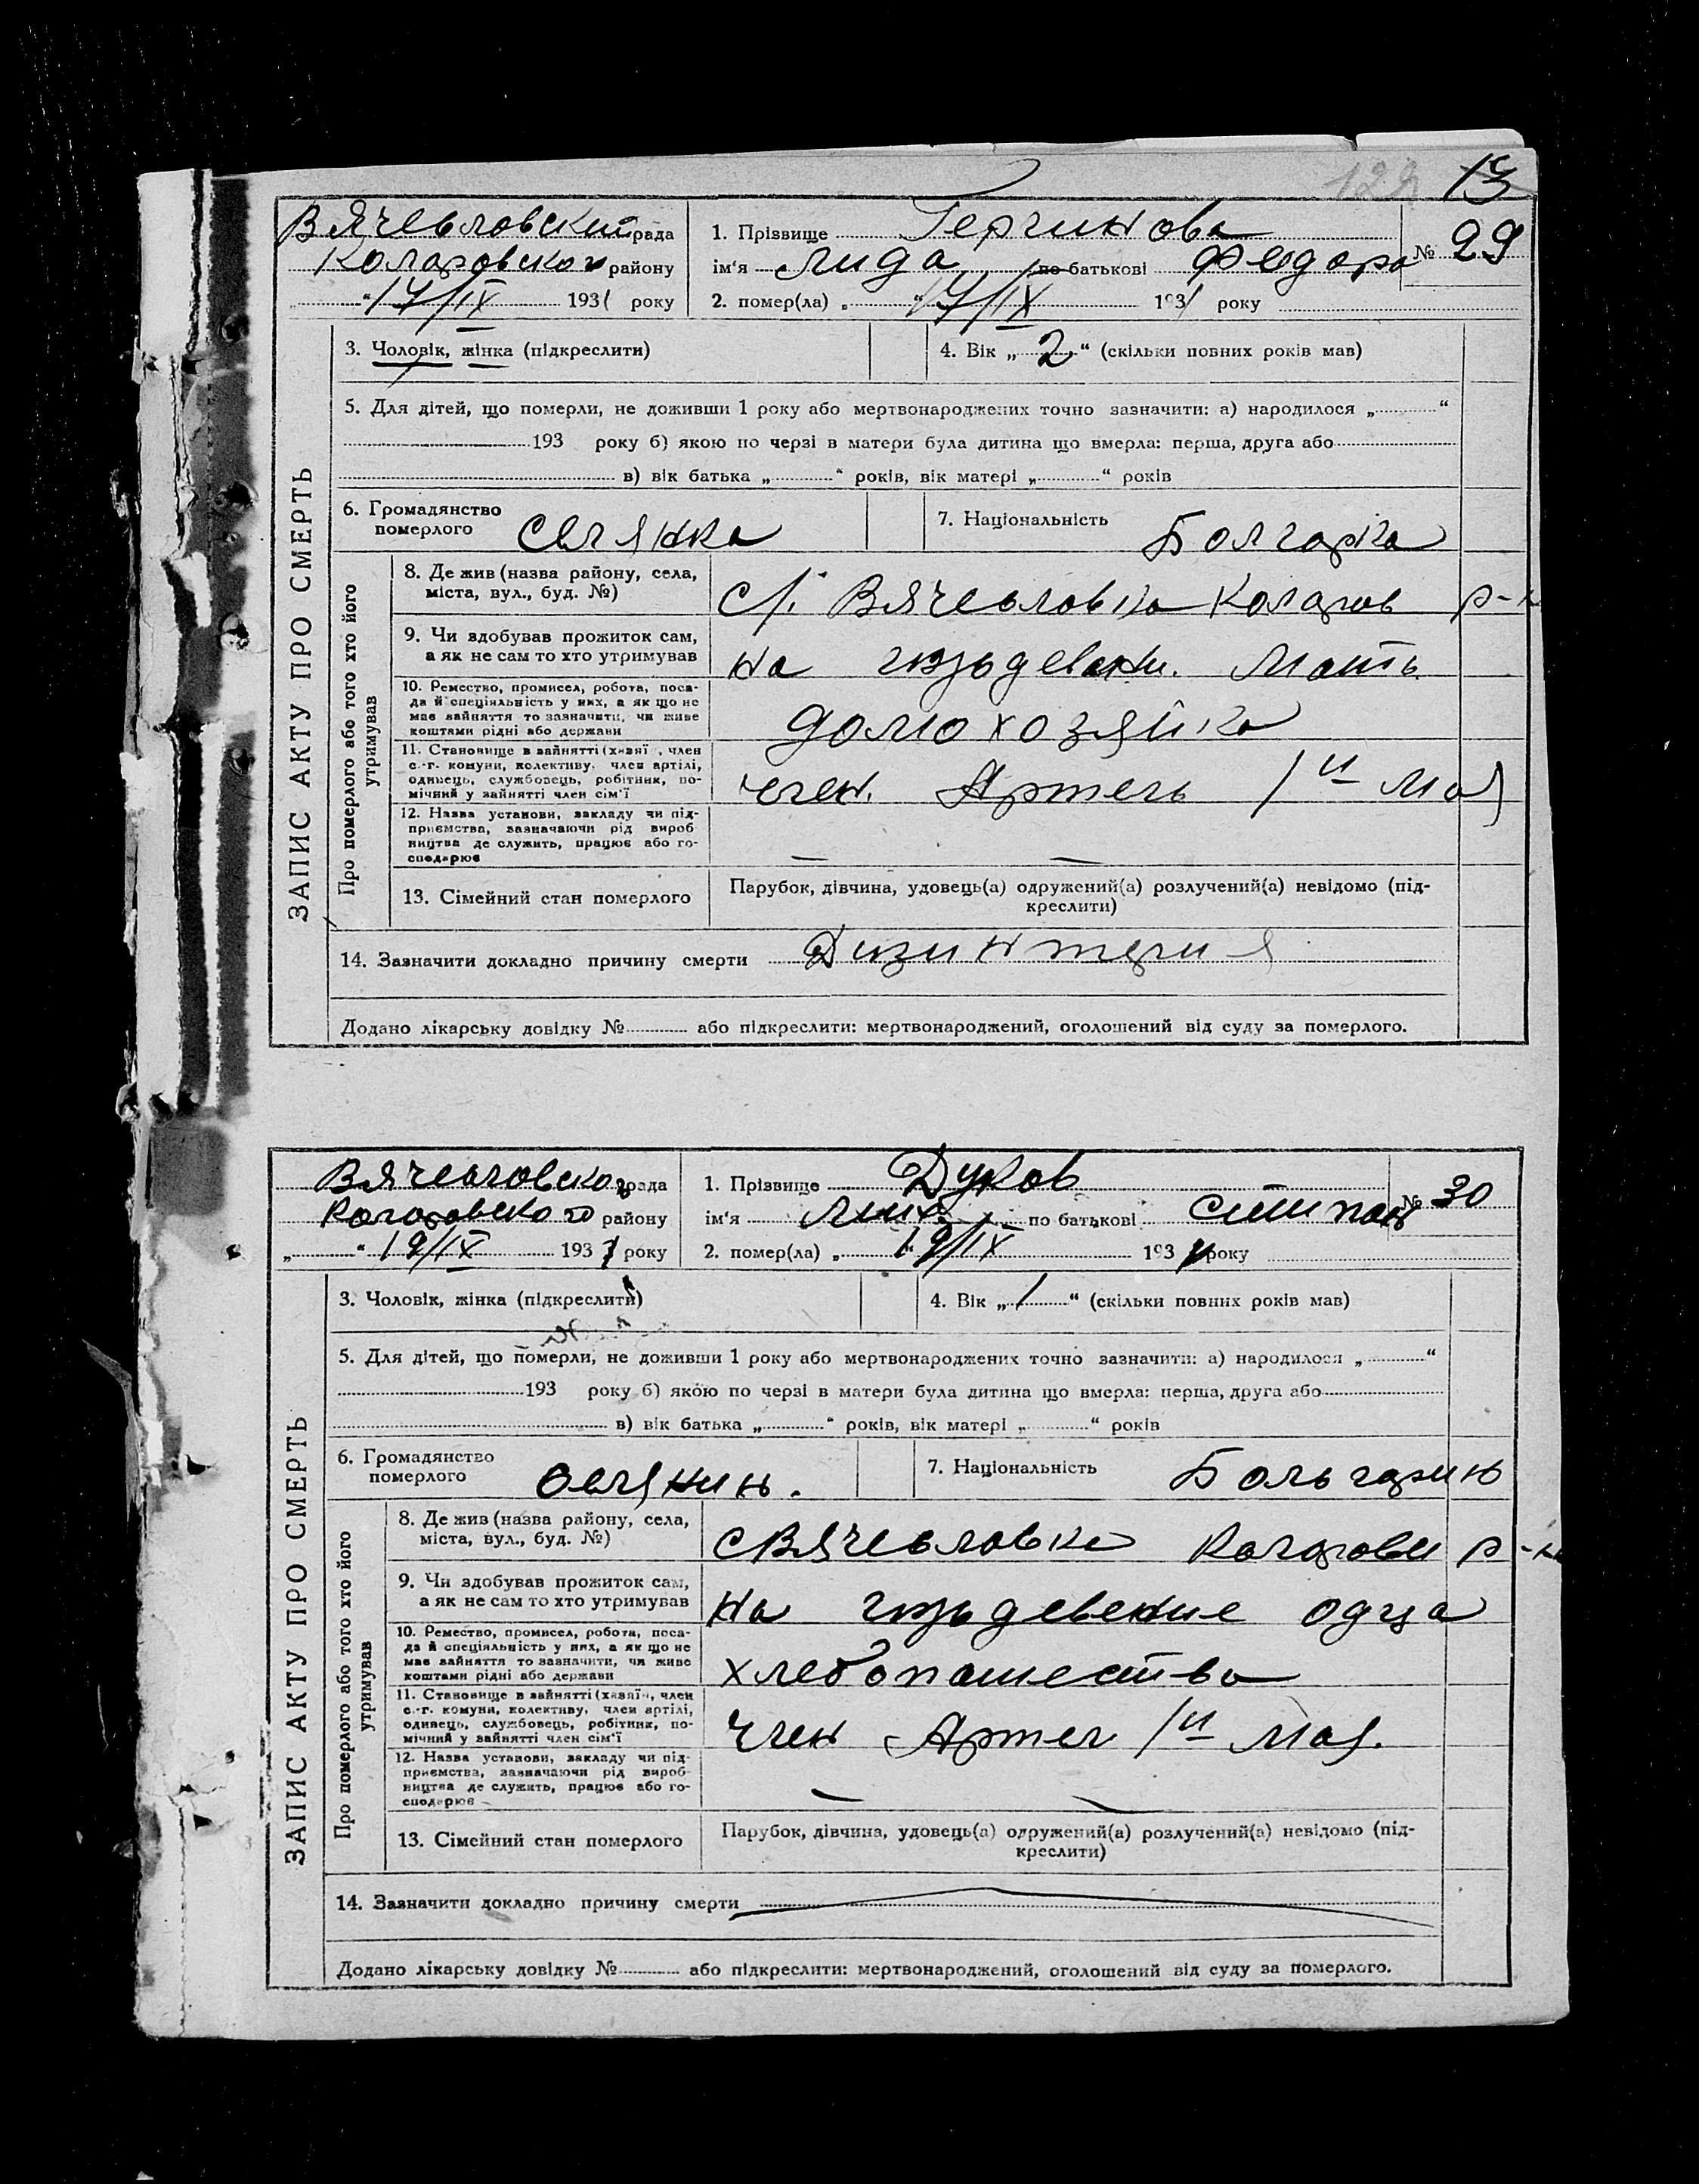 129 13
Вячеьловский рада
Коларовского району
„ “ 17/IX 1931 року
1. Прізвище Герчинова
ім'я Лида по батькові Федора
№ 29
2. помер(ла) „ “ 17/IX 1931 року
3. Чоловік, жінка (підкреслити)
4. Вік „ 2 “ (скільки повних років мав)
5. Для дітей, що померли, не доживши 1 року або мертвонароджених точно зазначити: а) народилося „ “
193 року б) якою по черзі в матери була дитина що вмерла: перша, друга або
в) вік батька „ “ років, вік матері „ “ років
ЗАПИС АКТУ ПРО СМЕРТЬ
6. Громадянство померлого Селянка
7. Національність Болгарка
Про померлого або того хто його утримував
8. Де жив (назва району, села,
міста, вул., буд. №)
с/. Вячеьловка Коларов р-н
9. Чи здобував прожиток сам,
а як не сам то хто утримував
на Мать
10. Ремество, промисел, робота, поса-
да й спеціяльність у них, а як що не
має зайняття то зазначити, чи живе
коштами рідні або держави
домохозяйка
11. Становище в зайнятті (хазяї , член
с.-г. комуни, колективу, член артілі,
одинець, службовець, робітник, по-
мічний у зайнятті член сім'ї
член. Артель 1й Мая
12. Назва установи, закладу чи під-
приємства, зазначаючи рід вироб
ництва де служить, працює або го-
сподарює
— —
13. Сімейний стан померлого
Парубок, дівчина, удовець(а) одружений(а) розлучений(а) невідомо (під-
креслити)
14. Зазначити докладно причину смерти Дизинтерия
Додано лікарську довідку № або підкреслити: мертвонароджений, оголошений від суду за померлого.
Вячеьловского рада
Коларовского району
„ “ 19/IX 1931 року
1. Прізвище Дуков
ім'я по батькові Стипан
№ 30
2. помер(ла) „ “ 19/IX 1931 року
3. Чоловік, жінка (підкреслити)
4. Вік „ 1 “ (скільки повних років мав)
5. Для дітей, що померли, не доживши 1 року або мертвонароджених точно зазначити: а) народилося „ “
193 року б) якою по черзі в матери була дитина що вмерла: перша, друга або
в) вік батька „ “ років, вік матері „ “ років
ЗАПИС АКТУ ПРО СМЕРТЬ
6. Громадянство померлого Селянин.
7. Національність Больгарин
Про померлого або того хто його утримував
8. Де жив (назва району, села,
міста, вул., буд. №)
с Вячеьловка Коларови р-н
9. Чи здобував прожиток сам,
а як не сам то хто утримував
на одца
10. Ремество, промисел, робота, поса-
да й спеціяльність у них, а як що не
має зайняття то зазначити, чи живе
коштами рідні або держави
хлебопашества
11. Становище в зайнятті (хазяїн, член
с.-г. комуни, колективу, член артілі,
одинець, службовець, робітник, по-
мічний у зайнятті член сім'ї
член Артел 1й Мая.
12. Назва установи, закладу чи під-
приємства, зазначаючи рід вироб-
ництва де служить, працює або го-
сподарює
— —
13. Сімейний стан померлого
Парубок, дівчина, удовець(а) одружений(а) розлучений(а) невідомо (під-
креслити)
14. Зазначити докладно причину смерти
Додано лікарську довідку № або підкреслити: мертвонароджений, оголошений від суду за померлого.